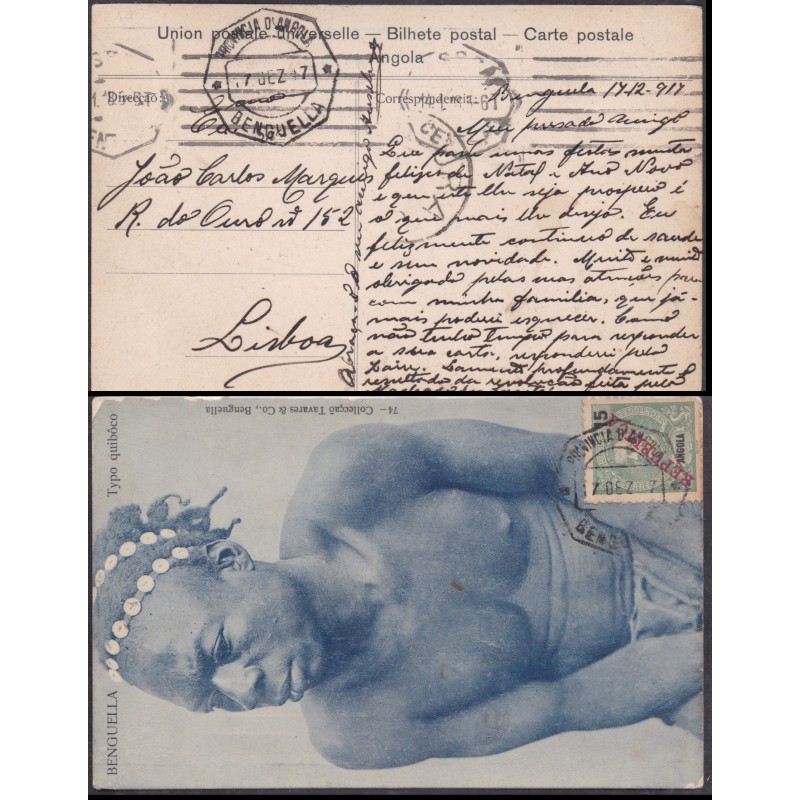 Union postale universelle — Bilhete postal — Carte postale
Angola
PROVINCIA D'ANGOLA
17 DEZ 17
BENGUELLA
Direcção
Correspondencia
João Carlos Marques
R. do Ouro nº 152
Lisboa
Benguela 17-12-917
Meu presado amigo
para umas festas muito
felizes de Natal e Ano Novo
e que este lhe seja prospero é
o que mais lhe desejo. Eu
felizmente continuo de saude
e sem novidade. Muito e muito
obrigado pelas suas atenções para
com minha familia, que já-
mais poderei esquecer. Como
não tenho tempo para responder
a sua carta, responderei pelo
Lamento profundamente o
resultado da revolução feita pelo
Typo quibôco
74 — Collecçaõ Tavares & Co., Benguella
BENGUELLA
15
ANGOLA
REPUBLICA
PROVINCIA D'ANGOLA
7 DEZ
BENGU